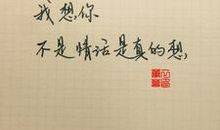 我想你
不是情话是真的想